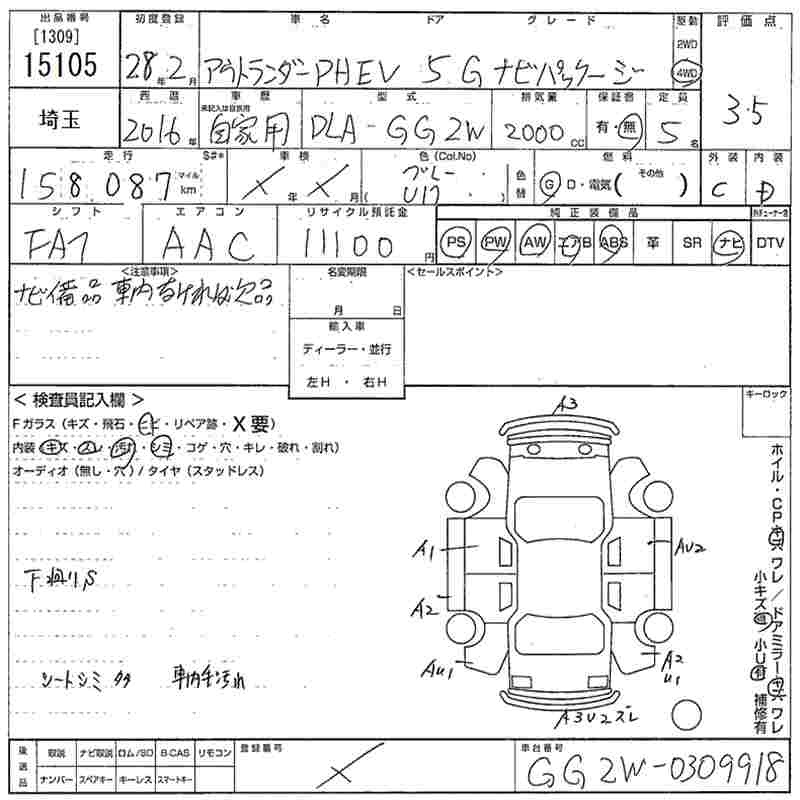 出品番号 初度登録 車名 ドア グレード 駆動 評価点
[1309] 2WD
15105 28年2月 アウトランダーPHEV 5 G ナビパッケージ 4WD
3.5
西暦 車歴 型式 排気量 保証書 定員
未記入は自家用
埼玉 2016年 自家用 DLA-GG2W 2000cc 有・無 5名
走行 S#* 車検 色(Col.No) 燃料 外装 内装
158,087 マイル km X年X月 グレー U17 色替 G・D・電気( その他 ) C D
シフト エアコン リサイクル預託金 純正装備品
FAT AAC 11100円 PS PW AW エアB ABS 革 SR ナビ DTV
<注意事項> 名変期限 <セールスポイント>
ナビ備品 車内なければ欠品
月 日
輸入車
ディーラー・並行
左H ・ 右H
キーロック
< 検査員記入欄 >
Fガラス(キズ・飛石・ヒビ・リペア跡・X要)
内装(キズ・スレ・汚れ・シミ・コゲ・穴・キレ・破れ・割れ)
オーディオ(無し・穴)/タイヤ(スタッドレス)
A3
A1 AU2
下廻りS
A2
AU1 A2
U1
シートシミ 車内キズ汚れ
A3U2スレ
ホイル・CPキズワレ/ドアミラーキズワレ
小キズ有 小U有 補修有
後送品 取説 ナビ取説 ロム/SD B-CAS リモコン 登録番号 車台番号
ナンバー スペアキー キーレス スマートキー X GG2W-0309918